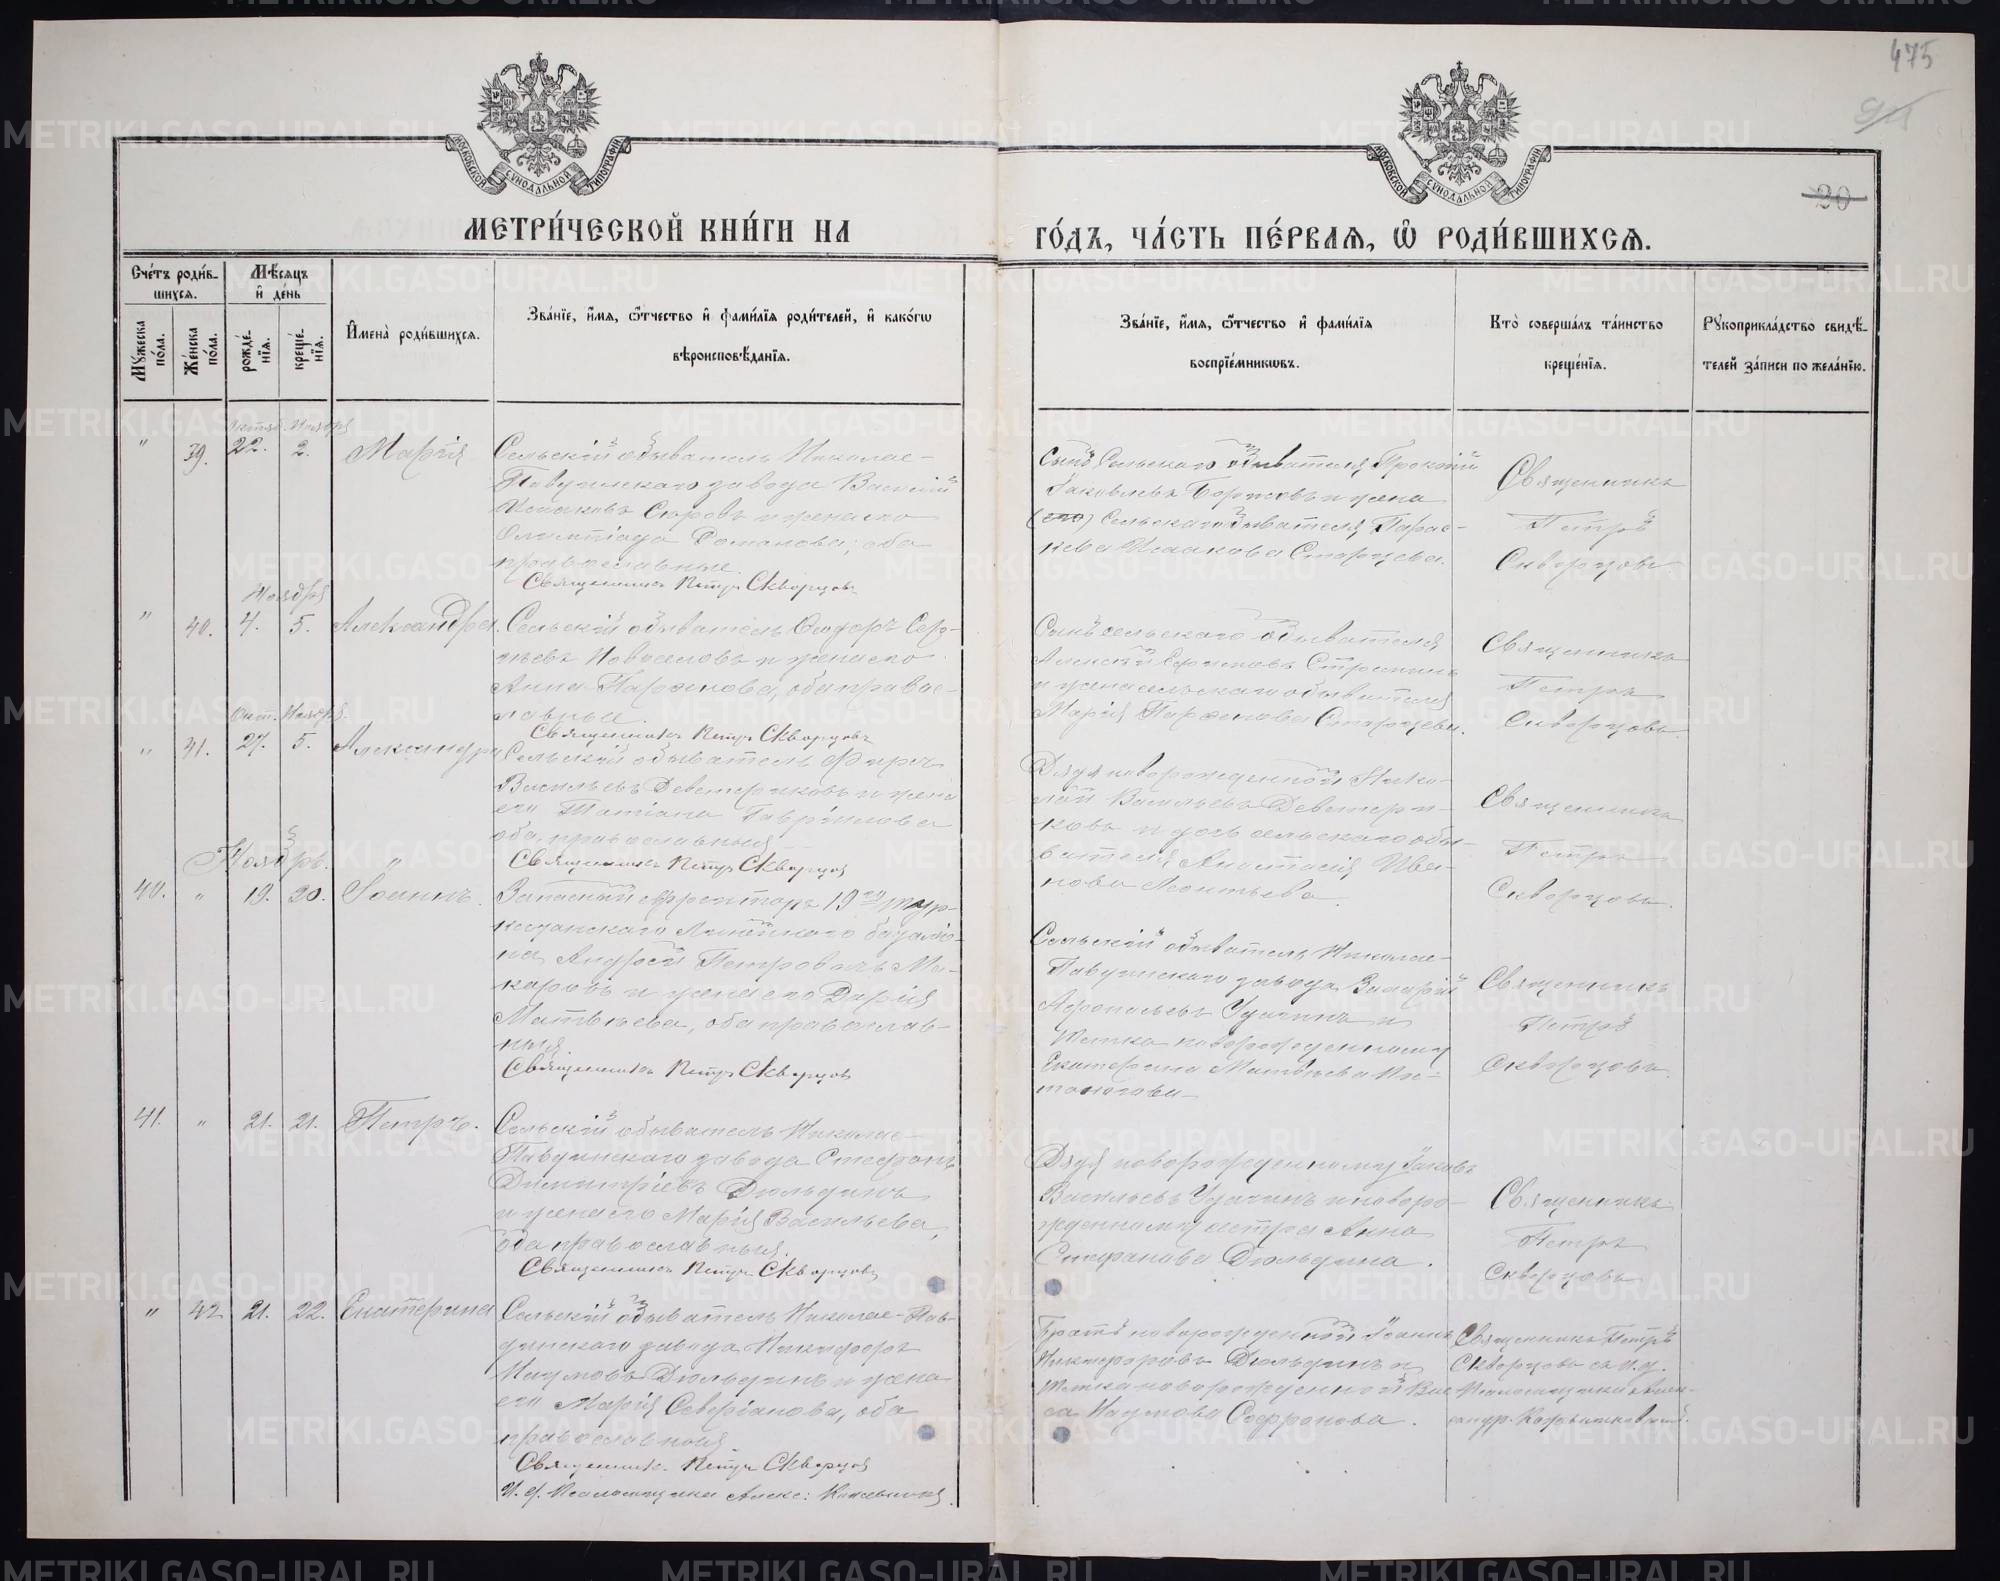 475
20
МОСКОВСКОЙ СУНОДАЛЬНОЙ ТИПОГРАФІИ
МОСКОВСКОЙ СУНОДАЛЬНОЙ ТИПОГРАФІИ
МЕТРИ́ЧЕСКОЙ КНИ́ГИ НА
ГО́ДЪ, ЧА́СТЬ ПЕ́РВАЯ, Ѡ РОДИ́ВШИХСЯ.
Сче́тъ роди́в-
шихся.
Мѣ́сяцъ
и де́нь
Мꙋ́жеска по́ла.
Же́нска по́ла.
рожде́нїя.
креще́нїя.
Имена̀ роди́вшихся.
Зва́нїе, и́мя, ѻ҆́тчество и фами́лїя роди́телей, и како́гѡ
вѣроисповѣ́данїя.
Зва́нїе, и́мя, ѻ҆́тчество и фами́лїя
воспрїе́мникѡвъ.
Кто̀ соверша́лъ та́инство
креще́нїя.
Рꙋкоприкла́дство свидѣ́-
телей за́писи по жела́нїю.
Октяб. Ноября
" 39. 22. 2. Марія
Сельскій обыватель Николае-
Павдинскаго завода Василій
Исааковъ Сюровъ и жена его
Олимпіада Романова, оба
православные.
Священникъ Петръ Скворцовъ
Сынъ Сельскаго обывателя Прокопій
Іаковлевъ и жена
(его) Сельскаго обывателя Парас-
кева Исаакова Старцева.
Священникъ
Петръ
Скворцовъ
Ноября
" 40. 4. 5. Александра.
Сельскій обыватель Ѳеодоръ Сер-
гѣевъ Новоселовъ и жена его
Анна Парѳенова, оба правос-
лавные.
Священникъ Петръ Скворцовъ
Сынъ сельскаго обывателя
Алексѣй
и жена сельскаго обывателя
Марія Парѳенова Старцева.
Священникъ
Петръ
Скворцовъ.
Окт. Ноября.
" 41. 27. 5. Александра
Сельскій обыватель Фирсъ
Васильевъ Девятериковъ и жена
его Татіана Гавріилова
оба православныя
Священникъ Петръ Скворцовъ
Дядя новорожденной Нико-
лай Васильевъ Девятери-
ковъ и дочь сельскаго обы-
вателя Анастасія Ива-
нова Леонтьева.
Священникъ
Петръ
Скворцовъ.
Ноябрь.
40. " 19. 20. Іоаннъ.
Запасный ефрейторъ 19го тур-
кестанскаго Линейнаго баталіо-
на Андрей Петровичъ Ма-
каровъ и жена его Дарія
Матвѣева, оба православ-
ныя.
Священникъ Петръ Скворцовъ
Сельскій обыватель Николае-
Павдинскаго завода
и
тетка новорожденному
Екатерина Матвѣева
Священникъ
Петръ
Скворцовъ.
41. " 21. 21. Петръ.
Сельскій обыватель Николае-
Павдинскаго завода Стефанъ
Димитріевъ Дюльдинъ
и жена его Марія Васильева,
оба православныя.
Священникъ Петръ Скворцовъ
Дядя новорожденному Іаковъ
Васильевъ и новоро-
жденному сестра Анна
Стефанова Дюльдина.
Священникъ
Петръ
Скворцовъ
" 42 21. 22. Екатерина
Сельскій обыватель Николае-Пав-
динскаго завода Никифоръ
Наумовъ Дюльдинъ и жена
его Марія Северіанова, оба
православныя
Священникъ Петръ Скворцовъ
И. д. Псаломщика Алекс:
Братъ новорожденной Іоаннъ
Никифоровъ Дюльдинъ и
тетка новорожденной Вас-
са Наумова Софронова.
Священникъ Петръ
Скворцовъ съ и. д.
Псаломщика Алек-
сандр.
METRIKI.GASO-URAL.RU